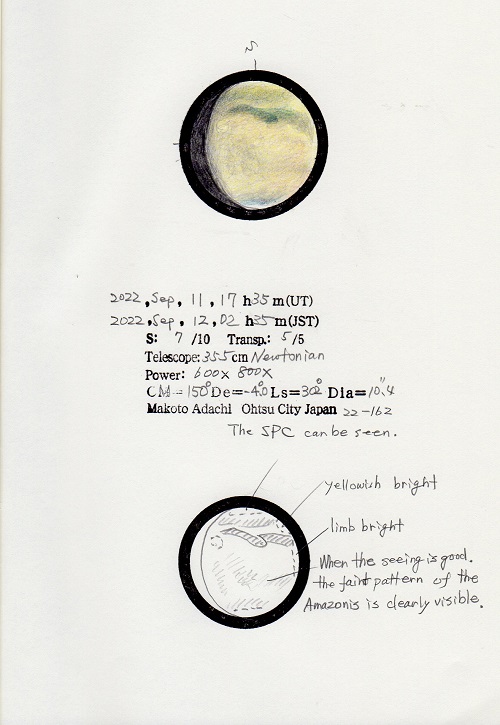 S
2022, Sep, 11, 17 h35 m(UT)
2022, Sep, 12, 02 h35 m(JST)
S: 7 /10 Transp.: 5/5
Telescope: 355cm Newtonian
Power: 600x 800x
CM=150° De=-4.0 Ls=302° Dia=10".4
Makoto Adachi Ohtsu City Japan 22-162
The SPC can be seen.
yellowish bright
limb bright
When the seeing is good.
the faint pattern of the
Amazonis is clearly visible.